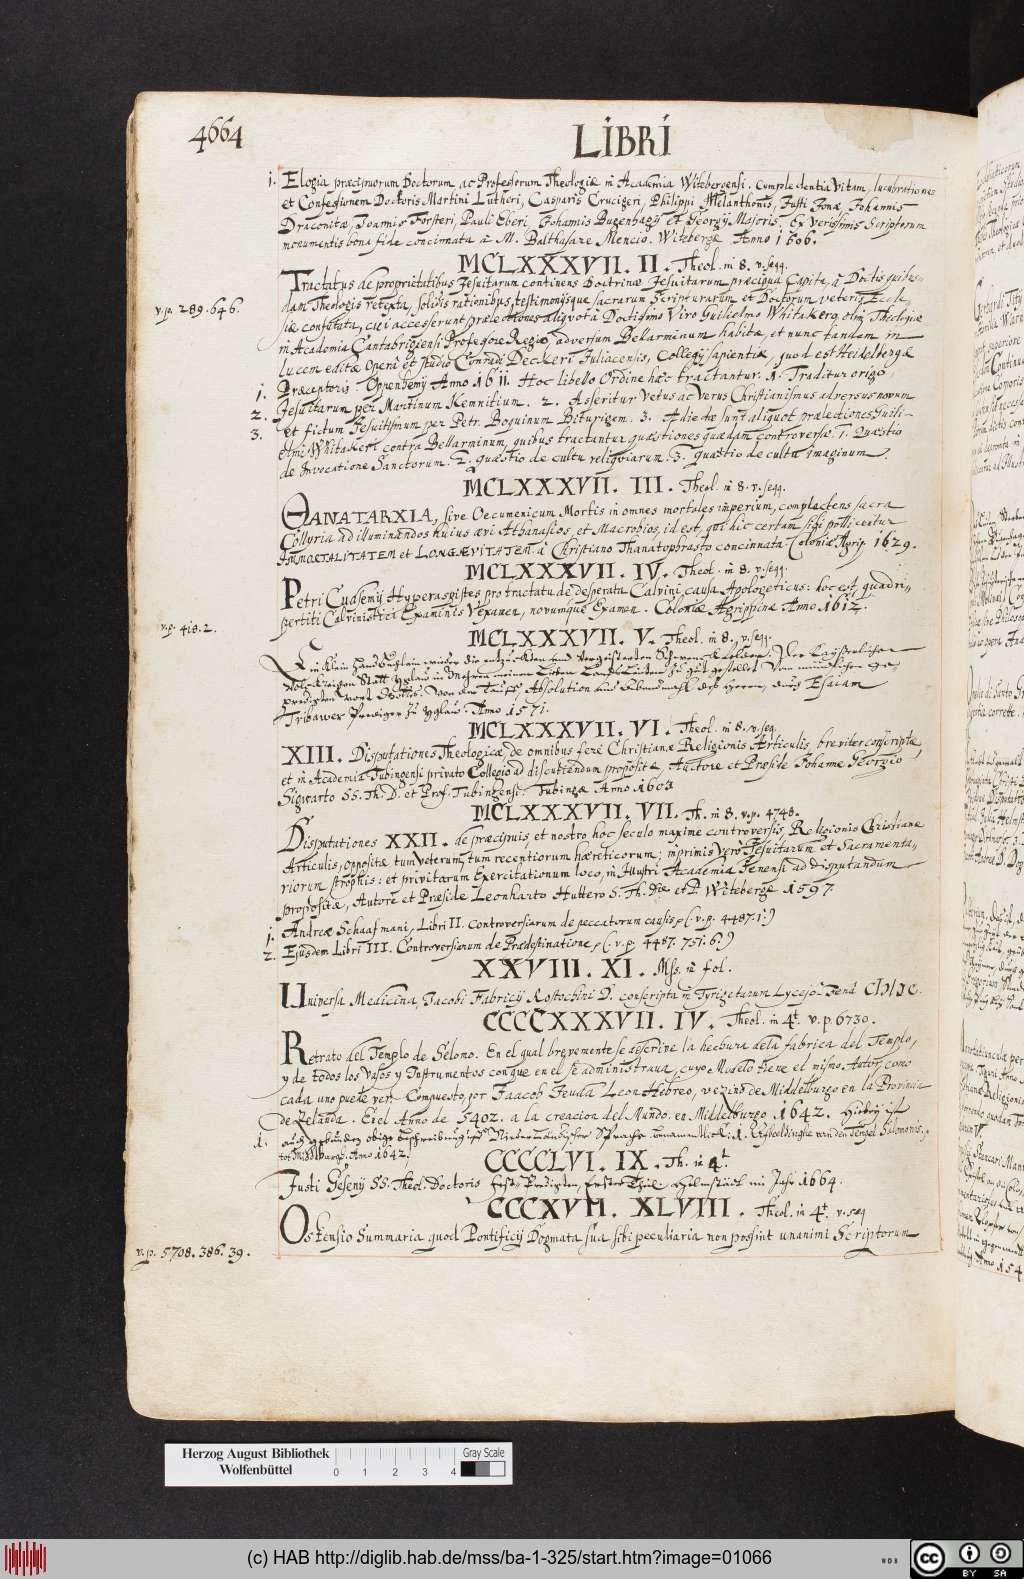 4664
LIBRI
1. Elogia præcipuorum Doctorum, ac Professorum Theologiæ in Academia Witebergensi. Complectentia Vitam, lucubrationes
et Confessionem Doctoris Martini Lutheri, Casparis Crucigeri, Philippi Melanthonis, Justi Jonæ, Johannis
Draconitæ, Joannis Forsteri, Pauli Eberi, Johannis Bugenhagij et Georgij Majoris. Ex verissimis Scriptorum
monumentis bona fide concinnata â M. Balthasare Mencio. Witebergæ Anno 1606.
MCLXXXVII. II. Theol. in 8. v. seqq.
Tractatus de proprietatibus Jesuitarum continens Doctrinæ Jesuitarum præcipua Capita, â Doctis quibus-
v.p. 289.646.
dam Theologis retexta, solidis rationibus, testimonijsque sacrarum Scripturarum et Doctorum veteris Eccle-
siæ confutata, cui accesserunt prælectiones aliquot â Doctissimo Viro Guilielmo Whitakero, olim Theologiæ
in Academia Cantabrigiensi Professore Regio, adversum Bellarminum habitæ, et nunc tandem in
lucem editæ Opera et studio Conradi Deckeri Juliacensis, Collegij sapientiæ, quod est Heidelbergæ
Præceptoris Oppenhemij Anno 1611. Hoc libello Ordine hæc tractantur. 1. Traditur origo
1.
Jesuitarum per Martinum Kemnitium. 2. Asseritur Vetus ac Verus Christianismus adversus novum
2.
et fictum Jesuitismum per Petr. Boquinum Biturigem. 3. Adjectæ sunt aliquot prælectiones Guili-
3.
elmi Whitakeri contra Bellarminum, quibus tractantur quæstiones quædam controversæ. 1. Quæstio
de Invocatione Sanctorum. 2. quæstio de cultu reliquiarum. 3. Quæstio de cultu imaginum.
MCLXXXVII. III. Theol. in 8. v. seqq.
ΘANATARXIA, sive Oecumenicum Mortis in omnes mortales imperium, complectens sacra
Collyria ad illuminandos huius ævi Athanasios, et Macrobios, id est, qui hic certam sibi pollicentur
IMMORTALITATEM et LONGÆVITATEM. â Christiano Thanatophrasto concinnata. Coloniæ Agrip. 1629.
MCLXXXVII. IV. Theol. in 8. v. seqq.
Petri Cudsemij Hyperaspistes pro tractatu de desperata Calvini causa Apologeticus: hoc est, quadri-
pertiti Calvinistici Examinis Vexamen, novumque Examen. Coloniæ Agrippinæ Anno 1612.
v.p. 418.2.
MCLXXXVII. V. Theol. in 8. v. seqq.
Ein klein Handbüchlein wieder die entzückten und vergeisterten Schwenckfelder. Der Kayserlichen
predigten wort Gottes. Von der Tauff Absolution und Abendmahl deß Herren, durch Esaiam
Tribawer Prediger zu Yglaw. Anno 1571.
MCLXXXVII. VI. Theol. in 8. v. seq.
XIII. Disputationes Theologicæ, de omnibus ferè Christianæ Religionis Articulis, breviter conscriptæ,
et in Academia Tubingensi privato Collegio ad discutiendum propositæ, Auctore et Præside Johanne Georgio
Sigwarto SS. Th. D. et Prof. Tubingensi. Tubingæ Anno 1603
MCLXXXVII. VII. Th. in 8. v.p. 4748.
Disputationes XXII. de præcipuis, et nostro hoc seculo maxime controversis, Religionis Christianæ
Articulis, oppositæ tum veterum, tum recentiorum hæreticorum; inprimis verò Jesuitarum et Sacramenta-
riorum strophis: et privatarum Exercitationum loco, in Illustri Academia Jenensi ad disputandum
propositæ, Autore et Præside Leonharto Huttero S. Th. D. et P. Witebergæ 1597.
1. Andreæ Schaafmani, Libri II. Controversiarum de peccatorum causis (:v.p. 4487.1:)
2. Ejusdem Libri III. Controversiarum de Prædestinatione, (:v.p. 4487. 751.6.:)
XXVIII. XI. Mss. in fol.
Universa Medicina, Jacobi Fabricij Rostochini D. conscripta in Tyrigetarum Lycejo Jena
CCCCXXXVII. IV. Theol. in 4t. v.p. 6730.
Retrato del Templo de Selomo. En el qual brevemente se descrive la hechura de la fabrica del Templo,
y de todos los Vasos y Instrumentos con que en el se administrava, cuyo Modelo tiene el mismo Autor, como
cada uno puede ver. Compuesto, por Jaacob Jeuda Leon Hebreo, vezino de Middelburgo en la Provincia
de Zelanda. Eiel Anno de 5402. a la creacion del Mundo. en Middelburgo. 1642. Hiebey ist
1. auch gebunden obige beschreibung in Niederländischer Sprache benanntlich: 1. Afbeeldinghe van den Tempel Salomonis,
tot Middelburgh. Anno 1642.
CCCCLVI. IX. Th. in 4t.
Justi Gesenij SS. Theol. Doctoris Fest-Predigten, Erster Theil. Helmstädt im Jahr 1664.
CCCXVII. XLVIII. Theol. in 4t. v. seq
Ostensio Summaria quod Pontificij Dogmata sua sibi peculiaria non possint unanimi Scriptorum
v.p. 5708. 386. 39.
Herzog August Bibliothek
Wolfenbüttel
0 1 2 3 4
Gray Scale
(c) HAB http://diglib.hab.de/mss/ba-1-325/start.htm?image=01066
WDB
cc BY SA